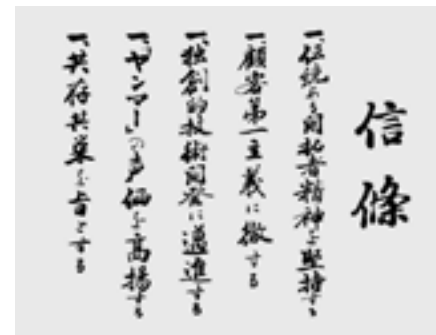 信條
一、伝統ある開拓者精神を堅持する
一、顧客第一主義に徹する
一、独創的技術開発に邁進する
一、「ヤンマー」の声価を高揚する
一、共存共栄を旨とする